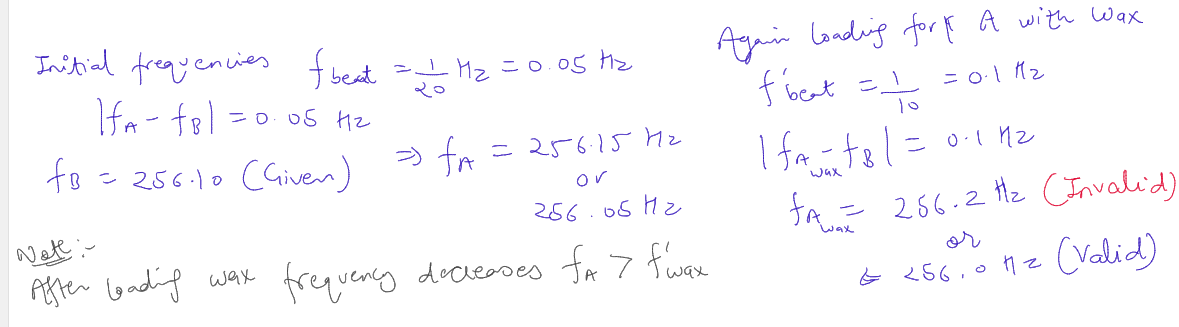 Initial frequencies f beat = 1/20 Hz = 0.05 Hz
|fA - fB| = 0.05 Hz
fB = 256.10 (Given) ⇒ fA = 256.15 Hz
or
256.05 Hz
Note :-
After loading wax frequency decreases fA > f'wax
Again loading fork A with wax
f'beat = 1/10 = 0.1 Hz
|fA wax - fB| = 0.1 Hz
fA wax = 256.2 Hz (Invalid)
or
256.0 Hz (Valid)